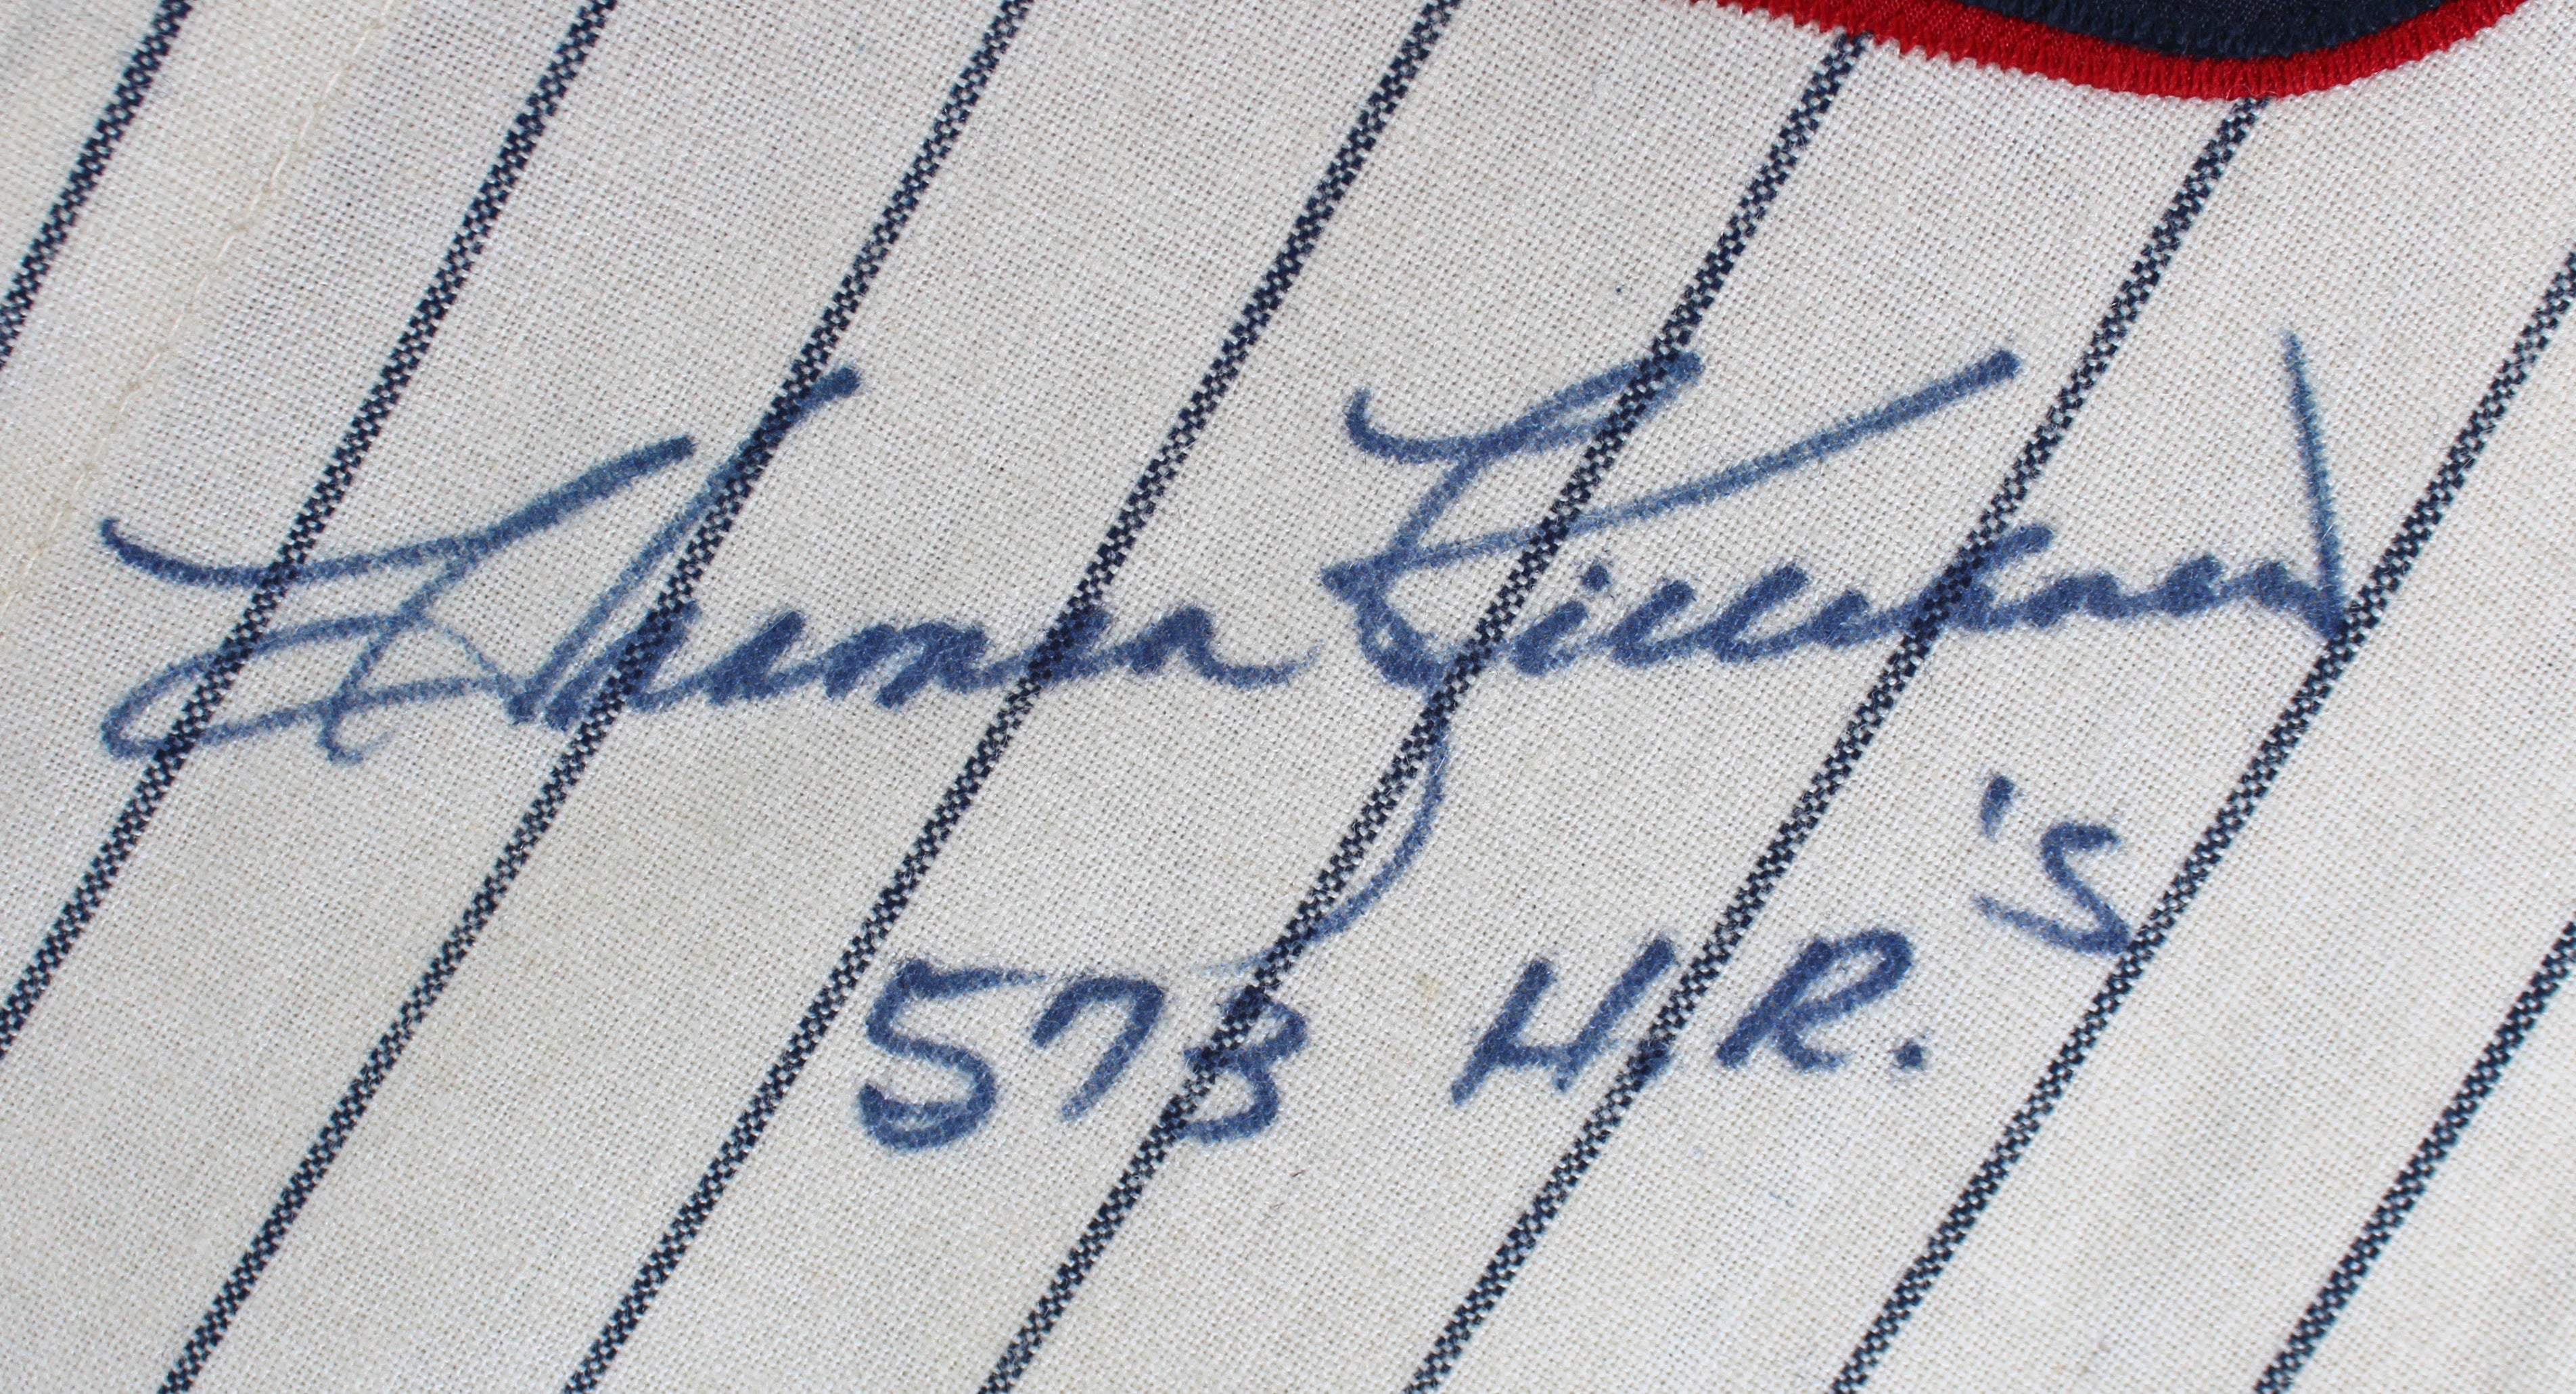 Harmon Killebrew
573 H.R.'s